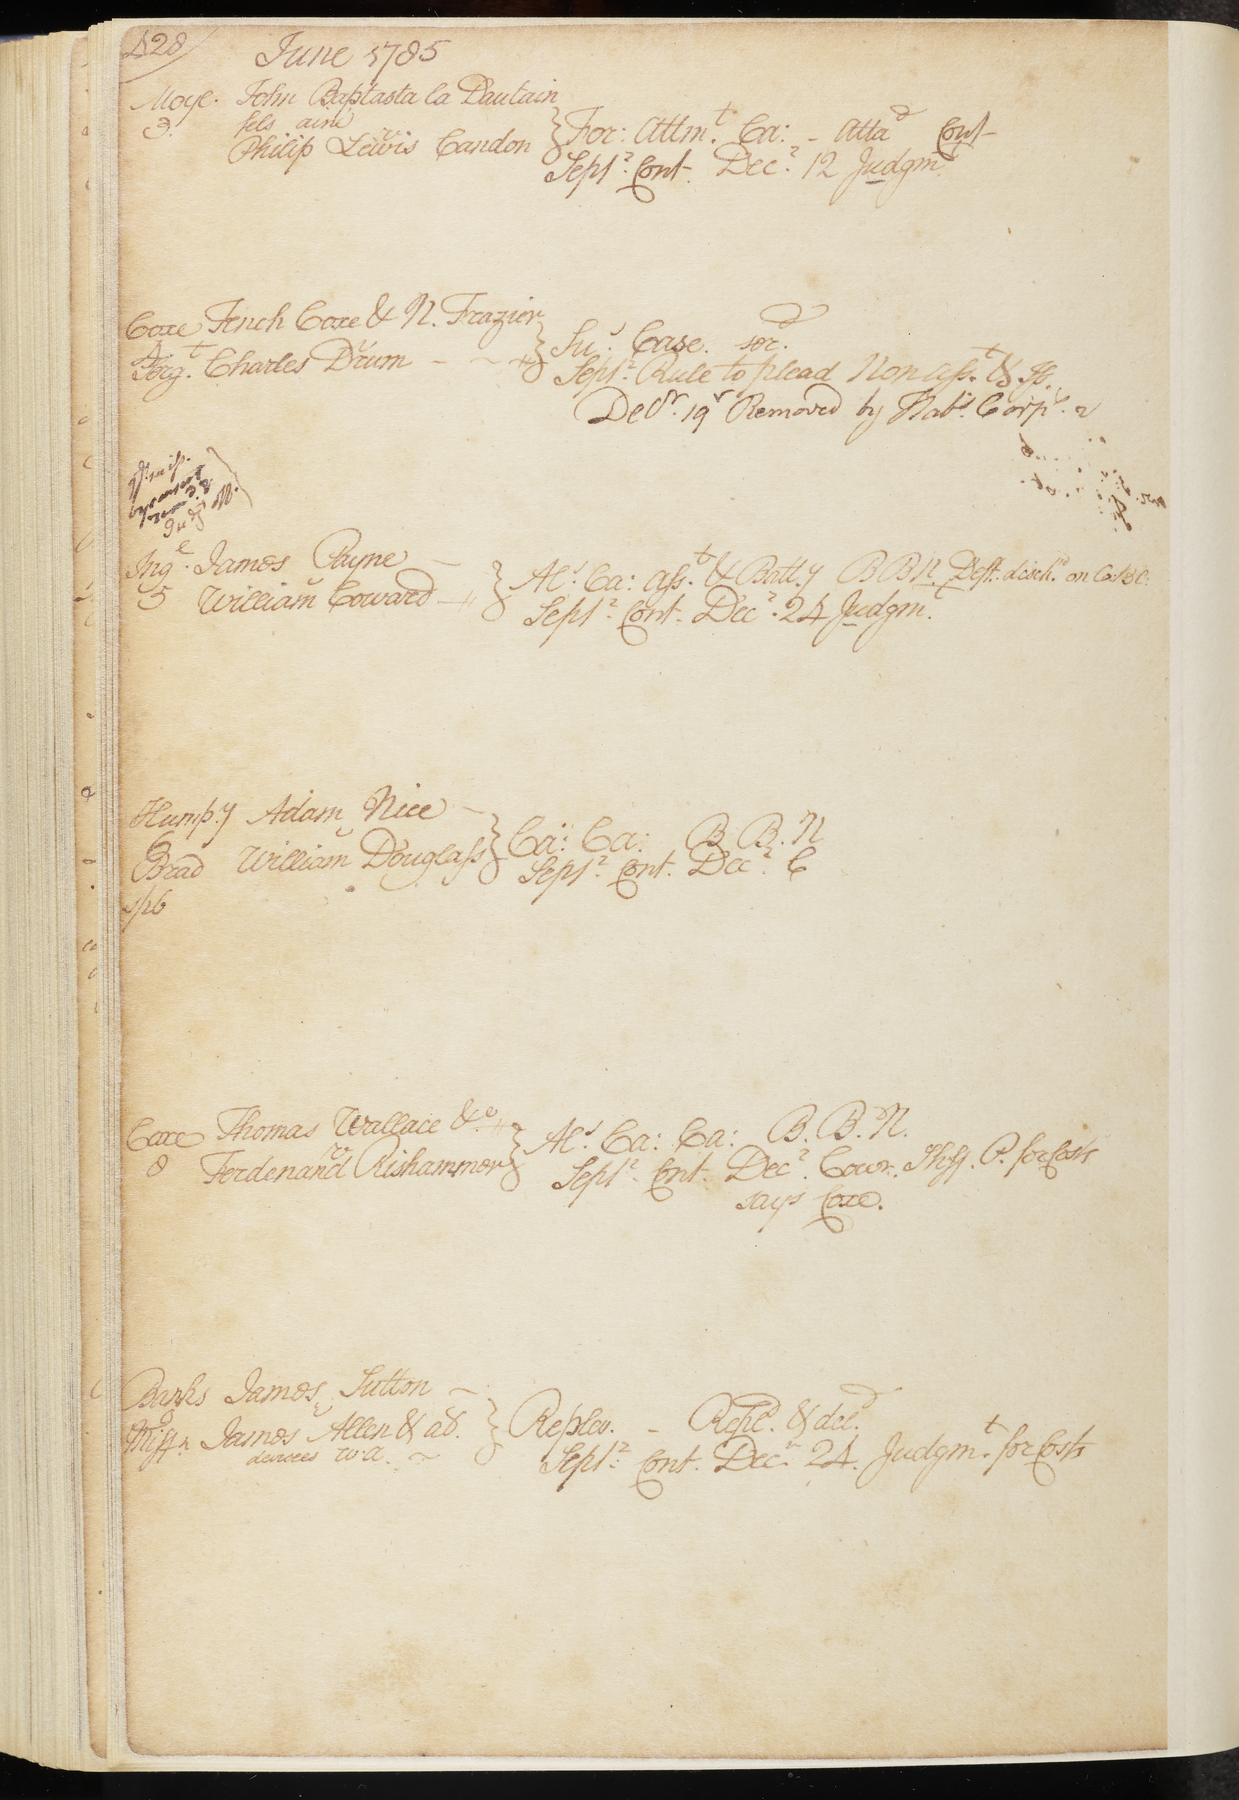 428
June 1785
Moyl. John Baptasta la Dautain
3. fils aine
Philip Lewis Candon
For: Attmt. Ca: - Attad Cont
Septr. Cont. Decr. 12 Judgmt
Coxe Tench Coxe & N. Frazier
4
Sergt. Charles Drum
Sus. Case. serd.
Septr. Rule to plead Non Asst. & Is.
Decr. 19r Removed by Habs. Corps.
Inge. James Payne
5 William Coward
Als. Ca: Asst. & Batty B B N Deft. disch.d on Co: B
Septr. Cont. Decr. 24 Judgmt.
Humpy Adam Nice
6
Brad William Douglass
Ca: Ca: B. B. N
Septr. Cont. Decr. C
Coxe Thomas Wallace &c
8 Ferdenand Rishammer
Als Ca: Ca: B. B. N.
Septr. Cont. Decr. Cour. Plff. P. for Costs
says Coxe.
Banks James Sutton
9
Miffn James Allen & ad.
devices w.a.
Replev. - Repld. & deld.
Septr. Cont. Decr. 24. Judgmt. for Costs